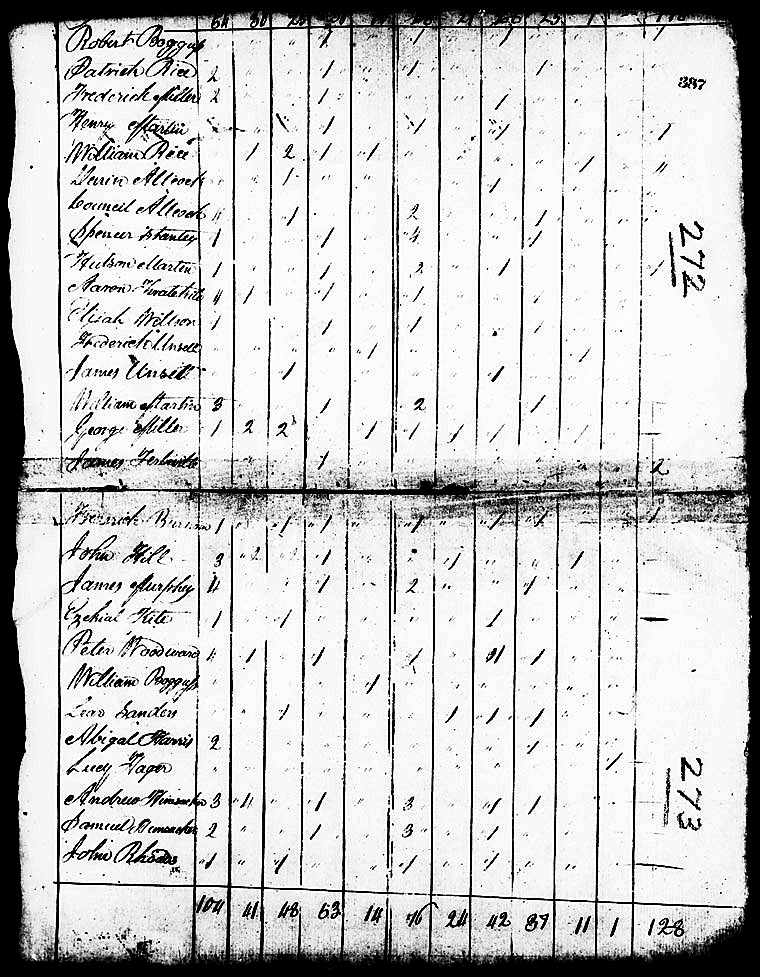 54 30 26
Robert Boggus " " " 1 " 1 " 1 " " " 1
Patrick Rice 2 " " 1 " 1 " " 1 " "
387
Frederick Miller 2 " " 1 " " " 1 " " "
Henry Martin " " " 1 " 1 " 1 " " " 1
William Rice " 1 2 1 1 " " " " 1 " "
Allcock " " 1 " " " " 1 " " "
Council Allcock 4 " 1 " " 2 " " 1 " "
272
Spencer Stanley 1 " " 1 " 4 " " 1 " "
Hutson Martin 1 " " 1 " 2 " 1 " " " 1
Aaron 4 1 " 1 " 1 " " 1 " "
Elijah Willson 1 " " 1 " 1 " " 1 " "
Frederick Unsell " " " " 1 " " " " 1 "
James Unsell " " 1 " " " " 1 " " "
William Martin 3 " " 1 " 2 " " 1 " "
George Miller 1 2 2 " 1 1 1 1 1 1 "
James " " " 1 " " " " " " " 2
1 " 1 1 " 1 " 1 1 " " 1
John Hill 3 2 " 1 " " 1 " " 1 "
James Murphey 4 " " 1 " 2 " " 1 " "
Ezekial Kite 1 " 1 " " " " 1 " " " —
Peter Woodward 4 1 " 1 " 1 " 1 1 " "
William Boggus " " " " 1 " " " " " "
Sanders " " 1 " " " 1 1 1 " "
Abigal Harris 2 " " " " " " " 1 " "
273
Lucy " " " " " " " " " " 1
Andrew 3 4 " 1 " 3 " 1 1 " " —
Samuel 2 " " 1 " 3 " 1 " " "
John Rhoads 1 " 1 " " 1 " 1 " " " —
104 41 48 53 14 76 24 42 37 11 1 128